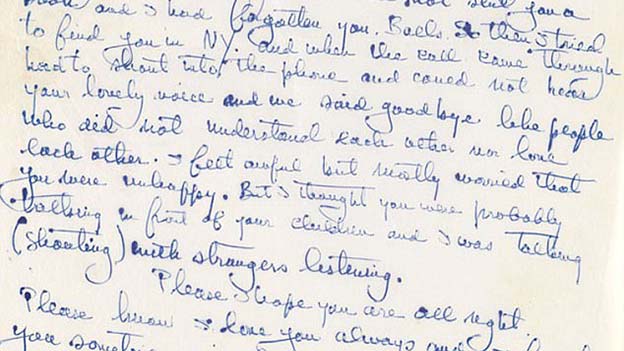 not sent you a
book and I had forgotten you. Balls. So then I tried
to find you in NY. and when the call came through
had to shout into the phone and could not hear
your lovely voice and we said goodbye like people
who did not understand each other nor love
each other. I felt awful but mostly worried that
you were unhappy. But I thought you were probably
talking in front of your children and I was talking
(shouting) with strangers listening.
Please I hope you are all right.
Please know I love you always and
you